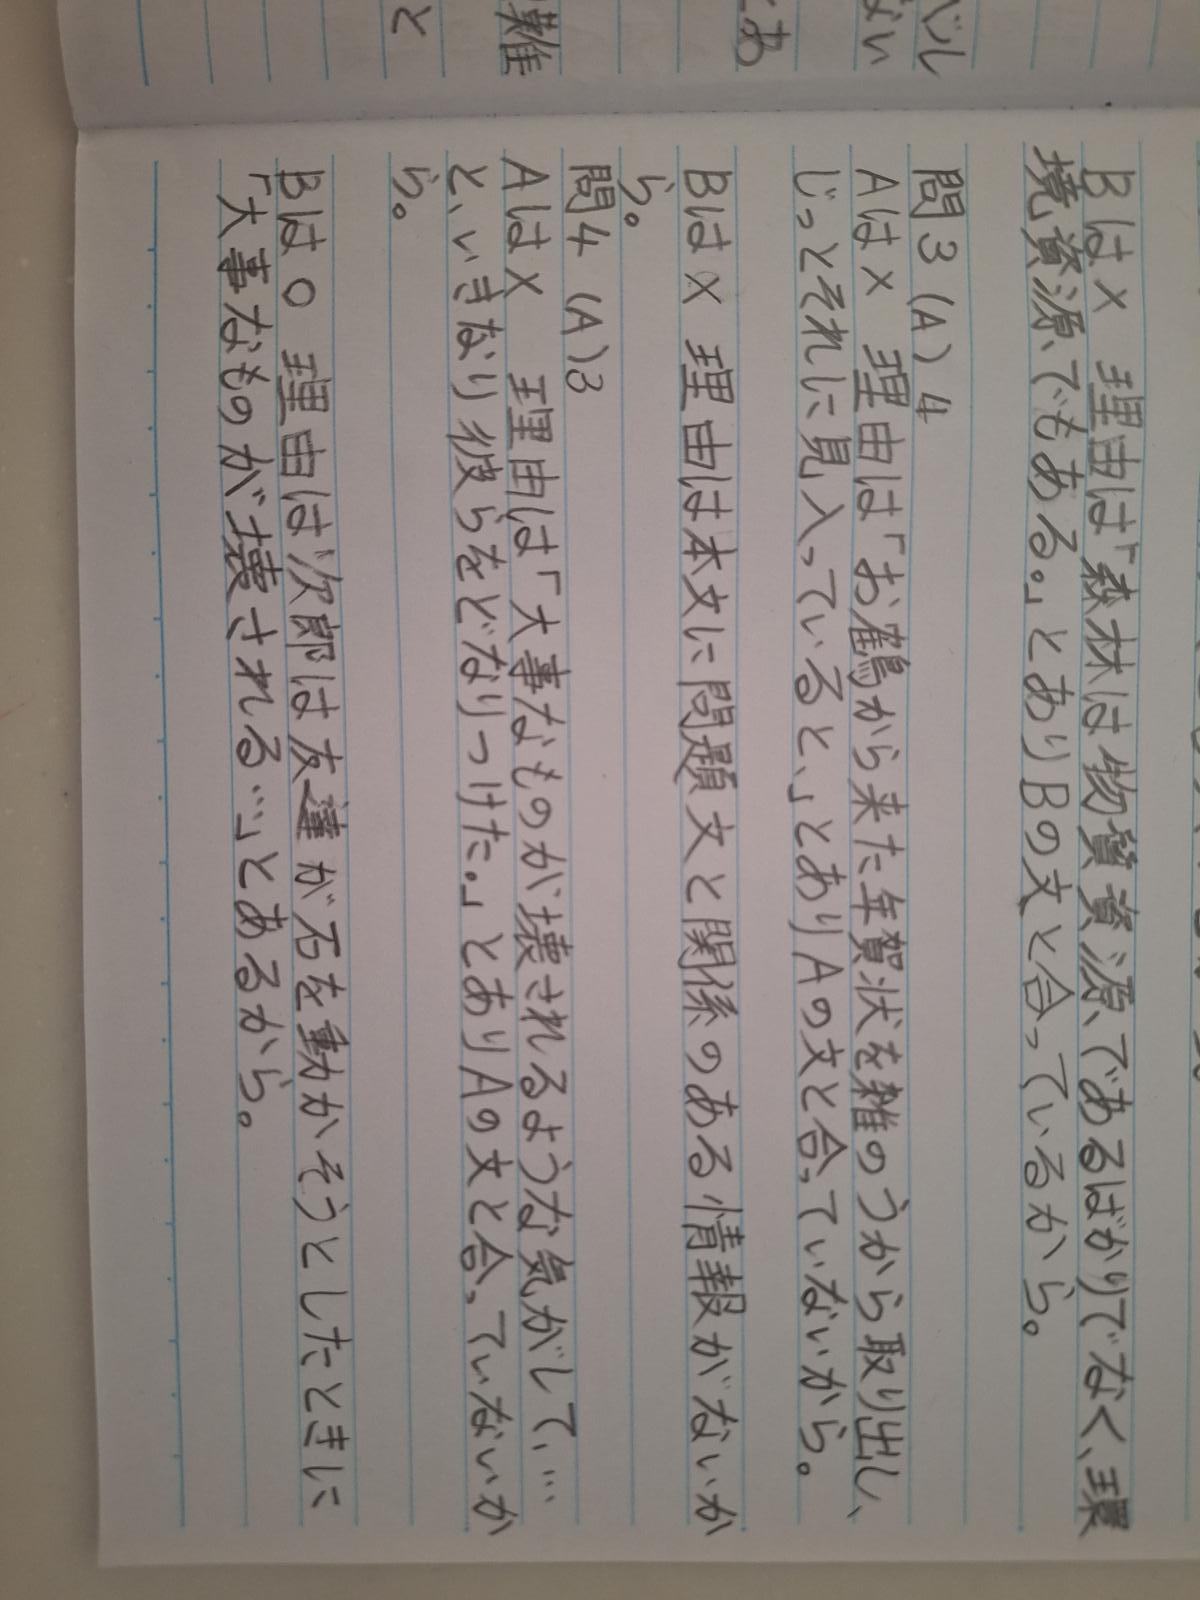 ベル
ない
とあ
難
と
Bは× 理由は「森林は物質資源であるばかりでなく、環
境資源でもある。」とありBの文と合っているから。
問3(A)4
Aは× 理由は「お鶴から来た年賀状を雑のうから取り出し、
じっとそれに見入っていると、」とありAの文と合っていないから。
Bは× 理由は本文に問題文と関係のある情報がないか
ら。
問4(A)3
Aは× 理由は「大事なものが壊されるような気がして、…
と、いきなり彼らをどなりつけた。」とありAの文と合っていないか
ら。
Bは○ 理由は次郎は友達が石を動かそうとしたときに
「大事なものが壊される…」とあるから。